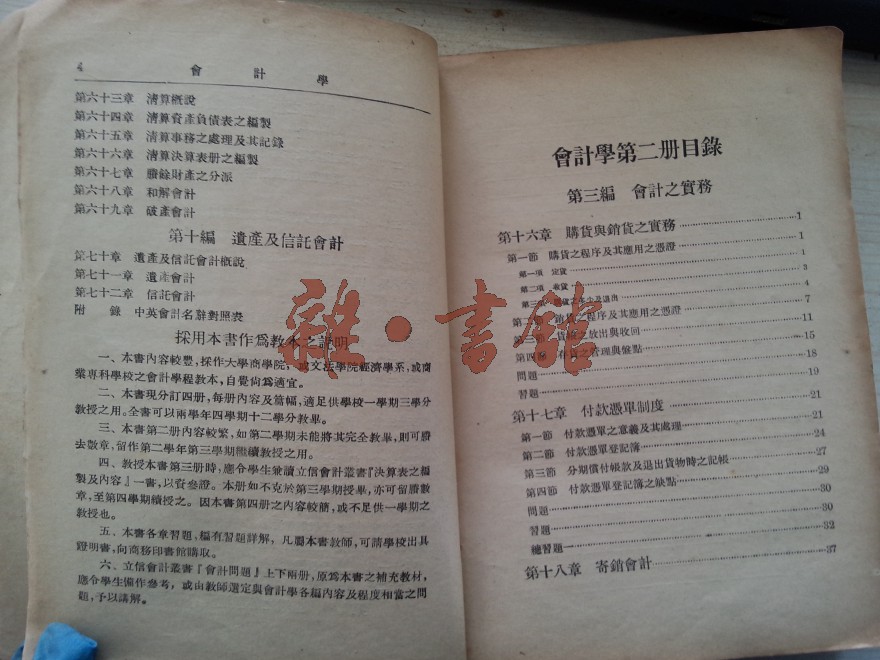 4 會計學
第六十三章 清算概說
第六十四章 清算資產負債表之編製
第六十五章 清算事務之處理及其記錄
第六十六章 清算決算表册之編製
第六十七章 賸餘財產之分派
第六十八章 和解會計
第六十九章 破產會計
第十編 遺產及信託會計
第七十章 遺產及信託會計概說
第七十一章 遺產會計
第七十二章 信託會計
附錄 中英會計名辭對照表
採用本書作爲教本之說明
一、本書內容較豐，採作大學商學院，或文法學院經濟學系，或商
業專科學校之會計學程教本，自覺尙爲適宜。
二、本書現分訂四册，每册內容及篇幅，適足供學校一學期三學分
教授之用。全書可以兩學年四學期十二學分教畢。
三、本書第二册內容較繁，如第二學期未能將其完全教畢，則可賸
去數章，留作第二學年第三學期繼續教授之用。
四、教授本書第三册時，應令學生兼讀立信會計叢書『決算表之編
製及內容』一書，以資參證。本册如不克於第三學期授畢，亦可留賸數
章，至第四學期續授之。因本書第四册之內容較簡，或不足供一學期之
教授也。
五、本書各章習題，編有習題詳解，凡屬本書教師，可請學校出具
證明書，向商務印書館購取。
六、立信會計叢書『會計問題』上下兩册，原爲本書之補充教材，
應令學生備作參考，或由教師選定與會計學各編內容及程度相當之問
題，予以講解。
會計學第二册目錄
第三編 會計之實務
第十六章 購貨與銷貨之實務 1
第一節 購貨之程序及其應用之憑證 1
第一項 定貨 1
第二項 收貨 3
第三項 貨之多少及退出 4
第二節 銷貨之程序及其應用之憑證 7
第三節 貨物之放出與收回 11
第四節 存貨之管理與盤點 15
問題 18
習題 19
第十七章 付款憑單制度 21
第一節 付款憑單之意義及其處理 21
第二節 付款憑單登記簿 24
第三節 分期償付帳款及退出貨物時之記帳 27
第四節 付款憑單登記簿之缺點 29
問題 30
習題 30
總習題一 32
第十八章 寄銷會計 37
雜·書館